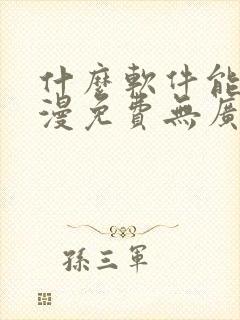 什麼軟件能
漫免費無廣
孫三軍